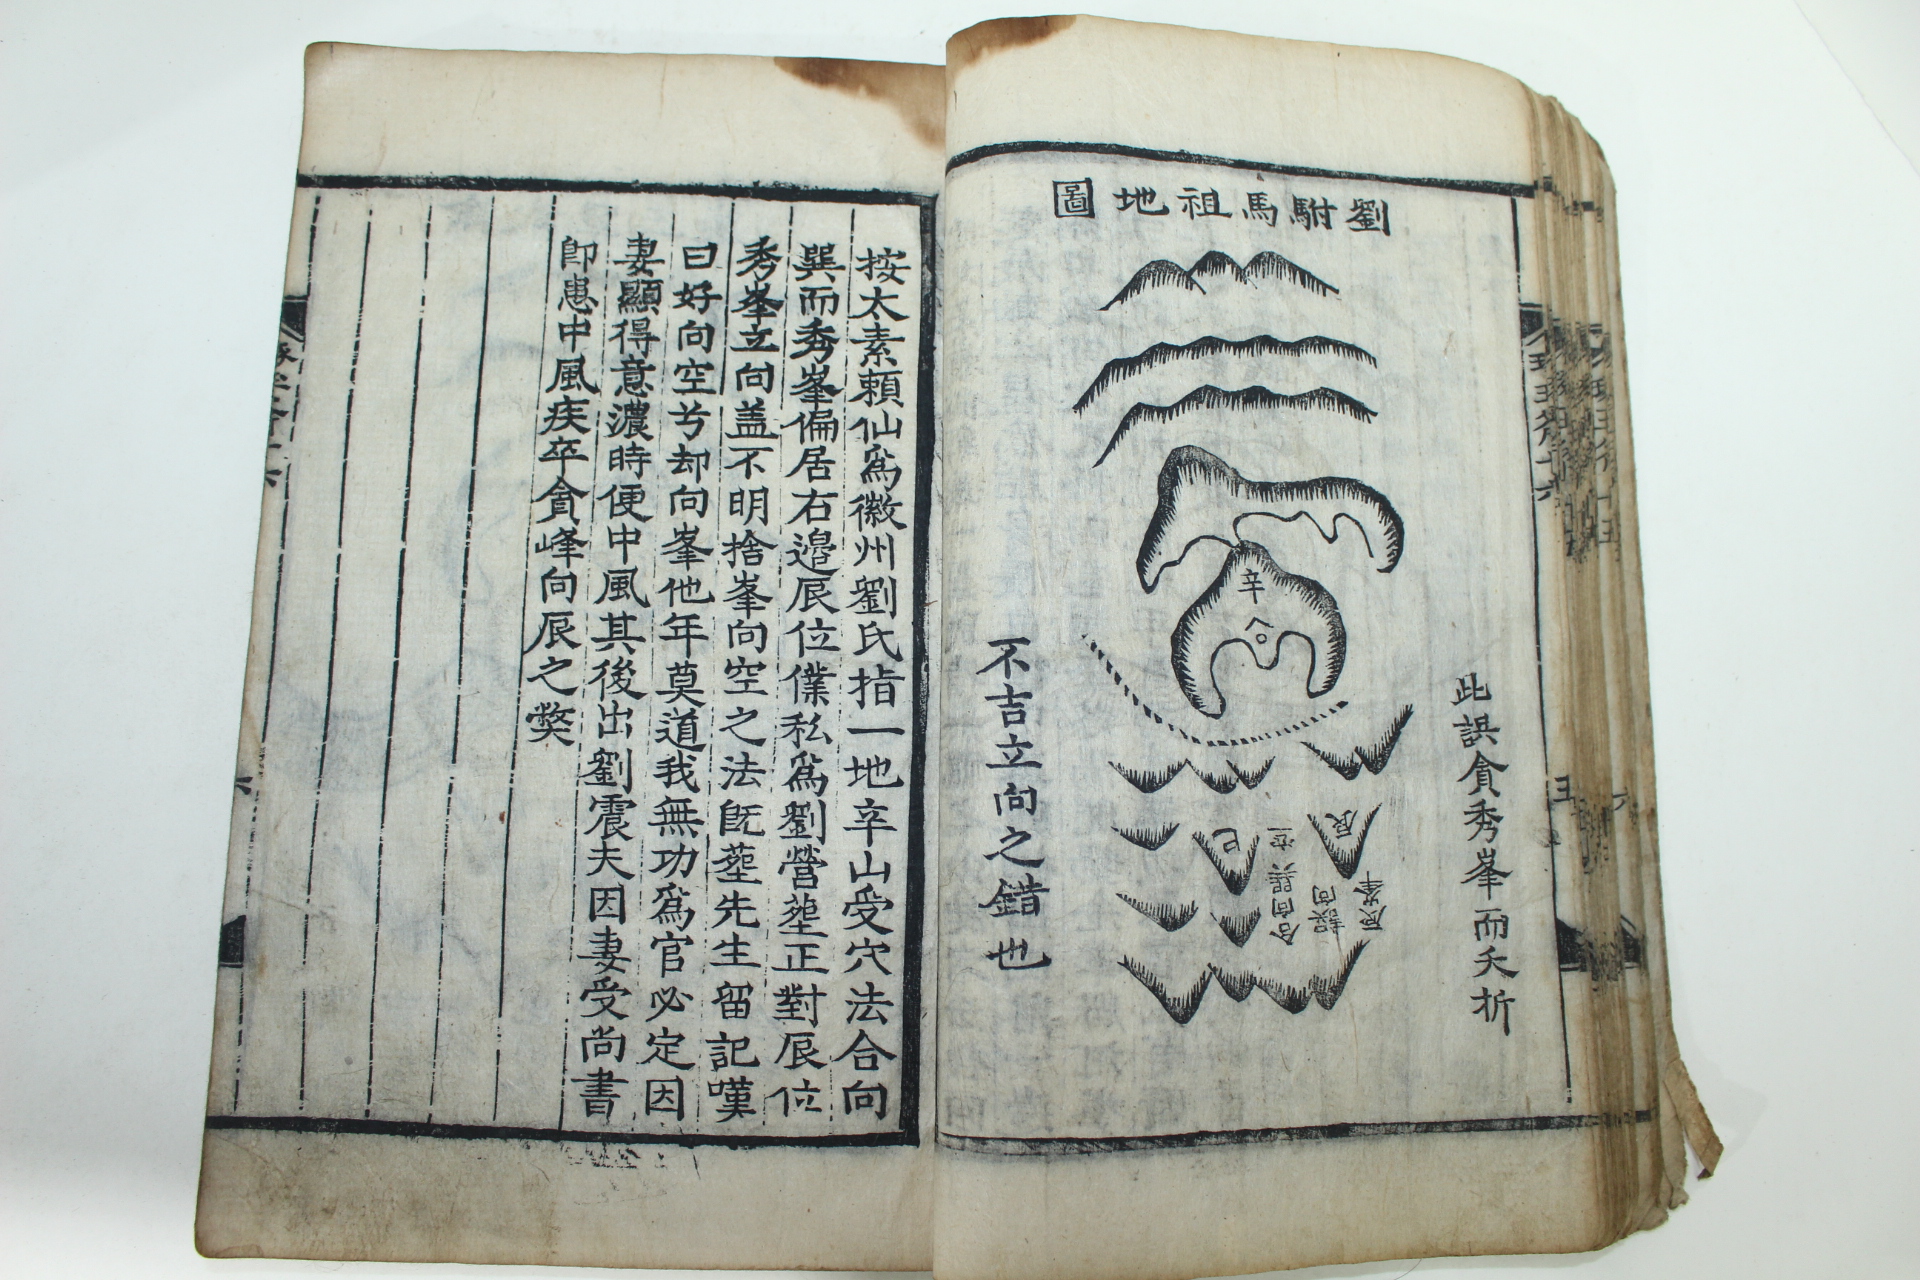 劉駙馬祖地圖
此誤貪秀峯而夭折
辛
穴
辰
巳
辰峯
誤向
空
合向巽
不吉立向之錯也
按太素頼仙爲徽州劉氏指一地辛山受穴法合向
巽而秀峯偏居右邉辰位僕私爲劉營塟正對辰位
秀峯立向盖不明捨峯向空之法旣塟先生留記嘆
曰好向空兮却向峯他年莫道我無功爲官必定因
妻顯得意濃時便中風其後出劉震夫因妻受尚書
卽患中風疾卒貪峰向辰之獘